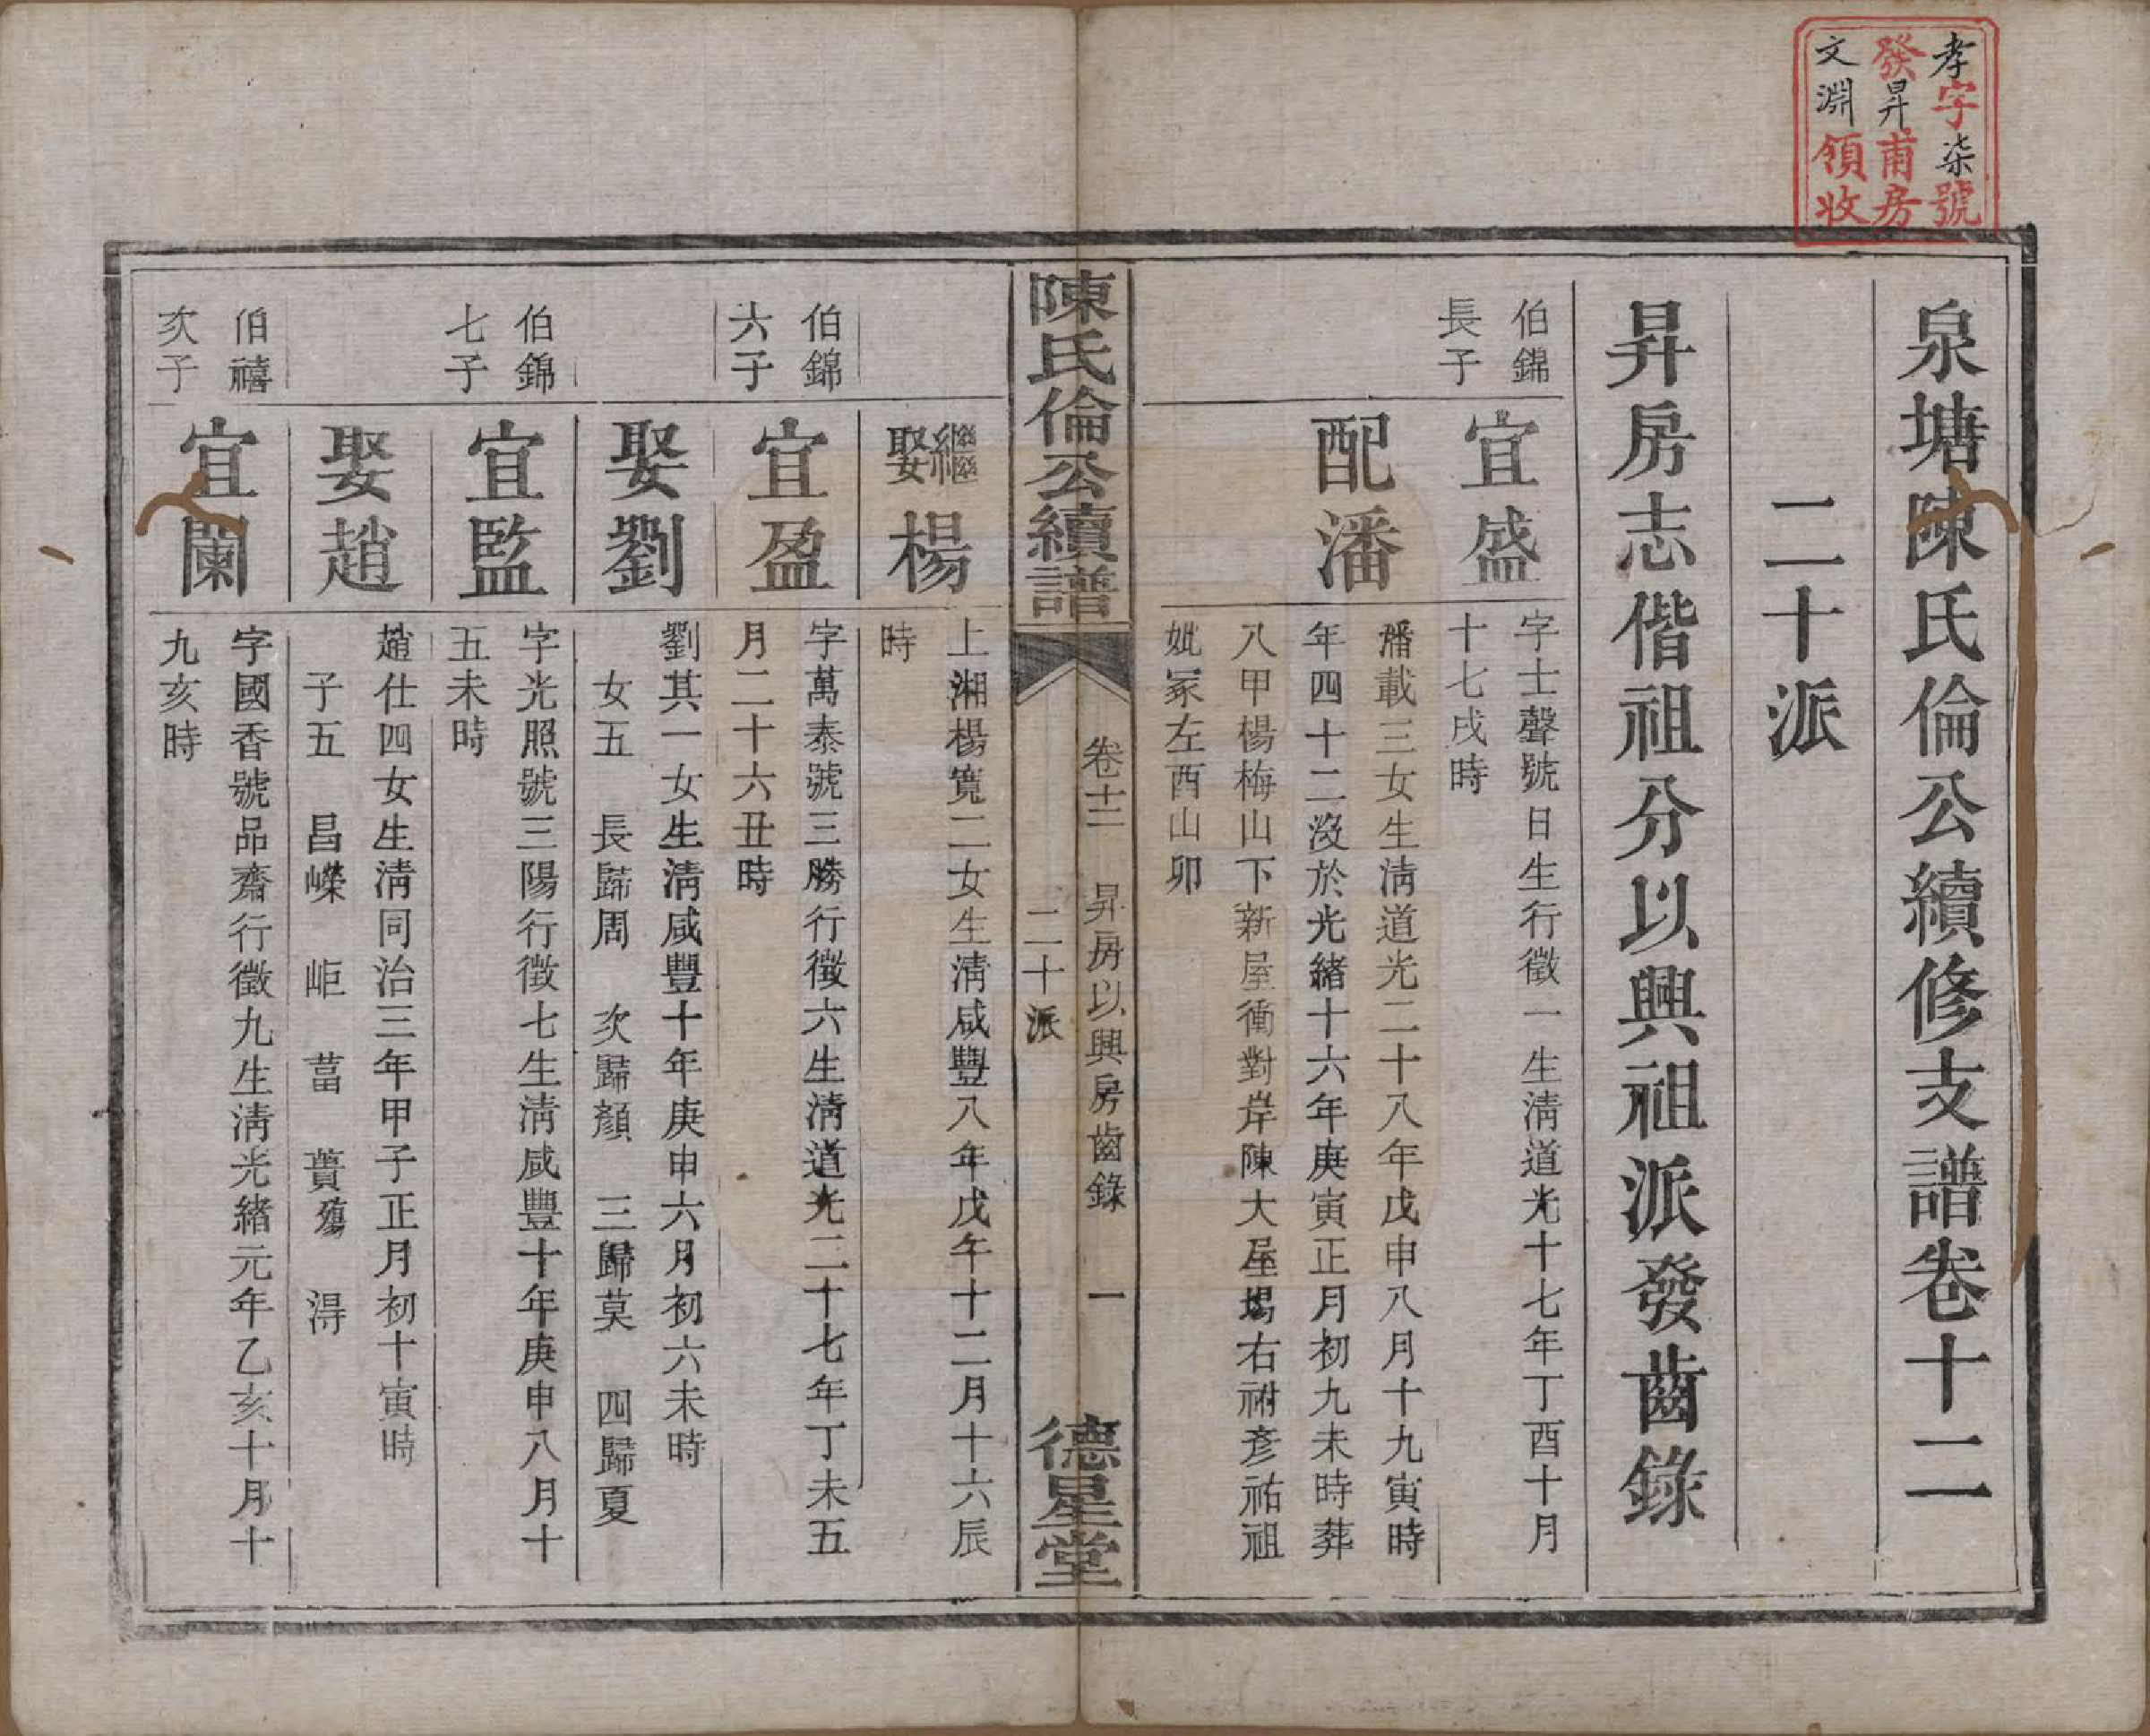 孝字柒號
發昇甫房
文淵領收
泉塘陳氏倫公續修支譜卷十二
二十派
昇房志偕祖分以興祖派發齒錄
伯錦
長子
宜盛
字士聲號日生行徵一生淸道光十七年丁酉十月
十七戌時
配潘
潘載三女生淸道光二十八年戊申八月十九寅時
年四十二沒於光緒十六年庚寅正月初九未時葬
八甲楊梅山下新屋衝對岸陳大屋塲右祔彥祐祖
妣冢左酉山卯
陳氏倫公續譜
卷十二 昇房以興房齒錄 一
二十派
德星堂
繼娶楊
上湘楊寬二女生淸咸豐八年戊午十二月十六辰
時
伯錦
六子
宜盈
字萬泰號三勝行徵六生淸道光二十七年丁未五
月二十六丑時
娶劉
劉其一女生淸咸豐十年庚申六月初六未時
女五 長歸周 次歸顏 三歸莫 四歸夏
伯錦
七子
宜監
字光照號三陽行徵七生淸咸豐十年庚申八月十
五未時
娶趙
趙仕四女生淸同治三年甲子正月初十寅時
子五 昌嶸 岠 葍 蕢殤 淂
伯禧
次子
宜闌
字國香號品齋行徵九生淸光緒元年乙亥十月十
九亥時